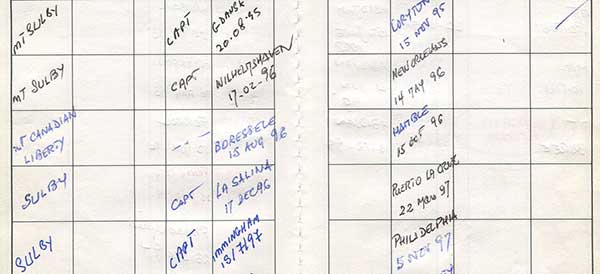 MT SULBY
CAPT
GDANSK
20.08.95
CORYTON
15 NOV 95
MT SULBY
CAPT
WILHELMSHAVEN
17-02-96
NEW ORLEANS
14 MAY 96
MT CANADIAN
LIBERTY
BORESSELE
15 AUG 96
HAMBLE
15 OCT 96
SULBY
CAPT
LA SALINA
17 DEC 96
PUERTO LA CRUZ
22 97
SULBY
CAPT
IMMINGHAM
PHILIDELPHIA
5 NOV 97